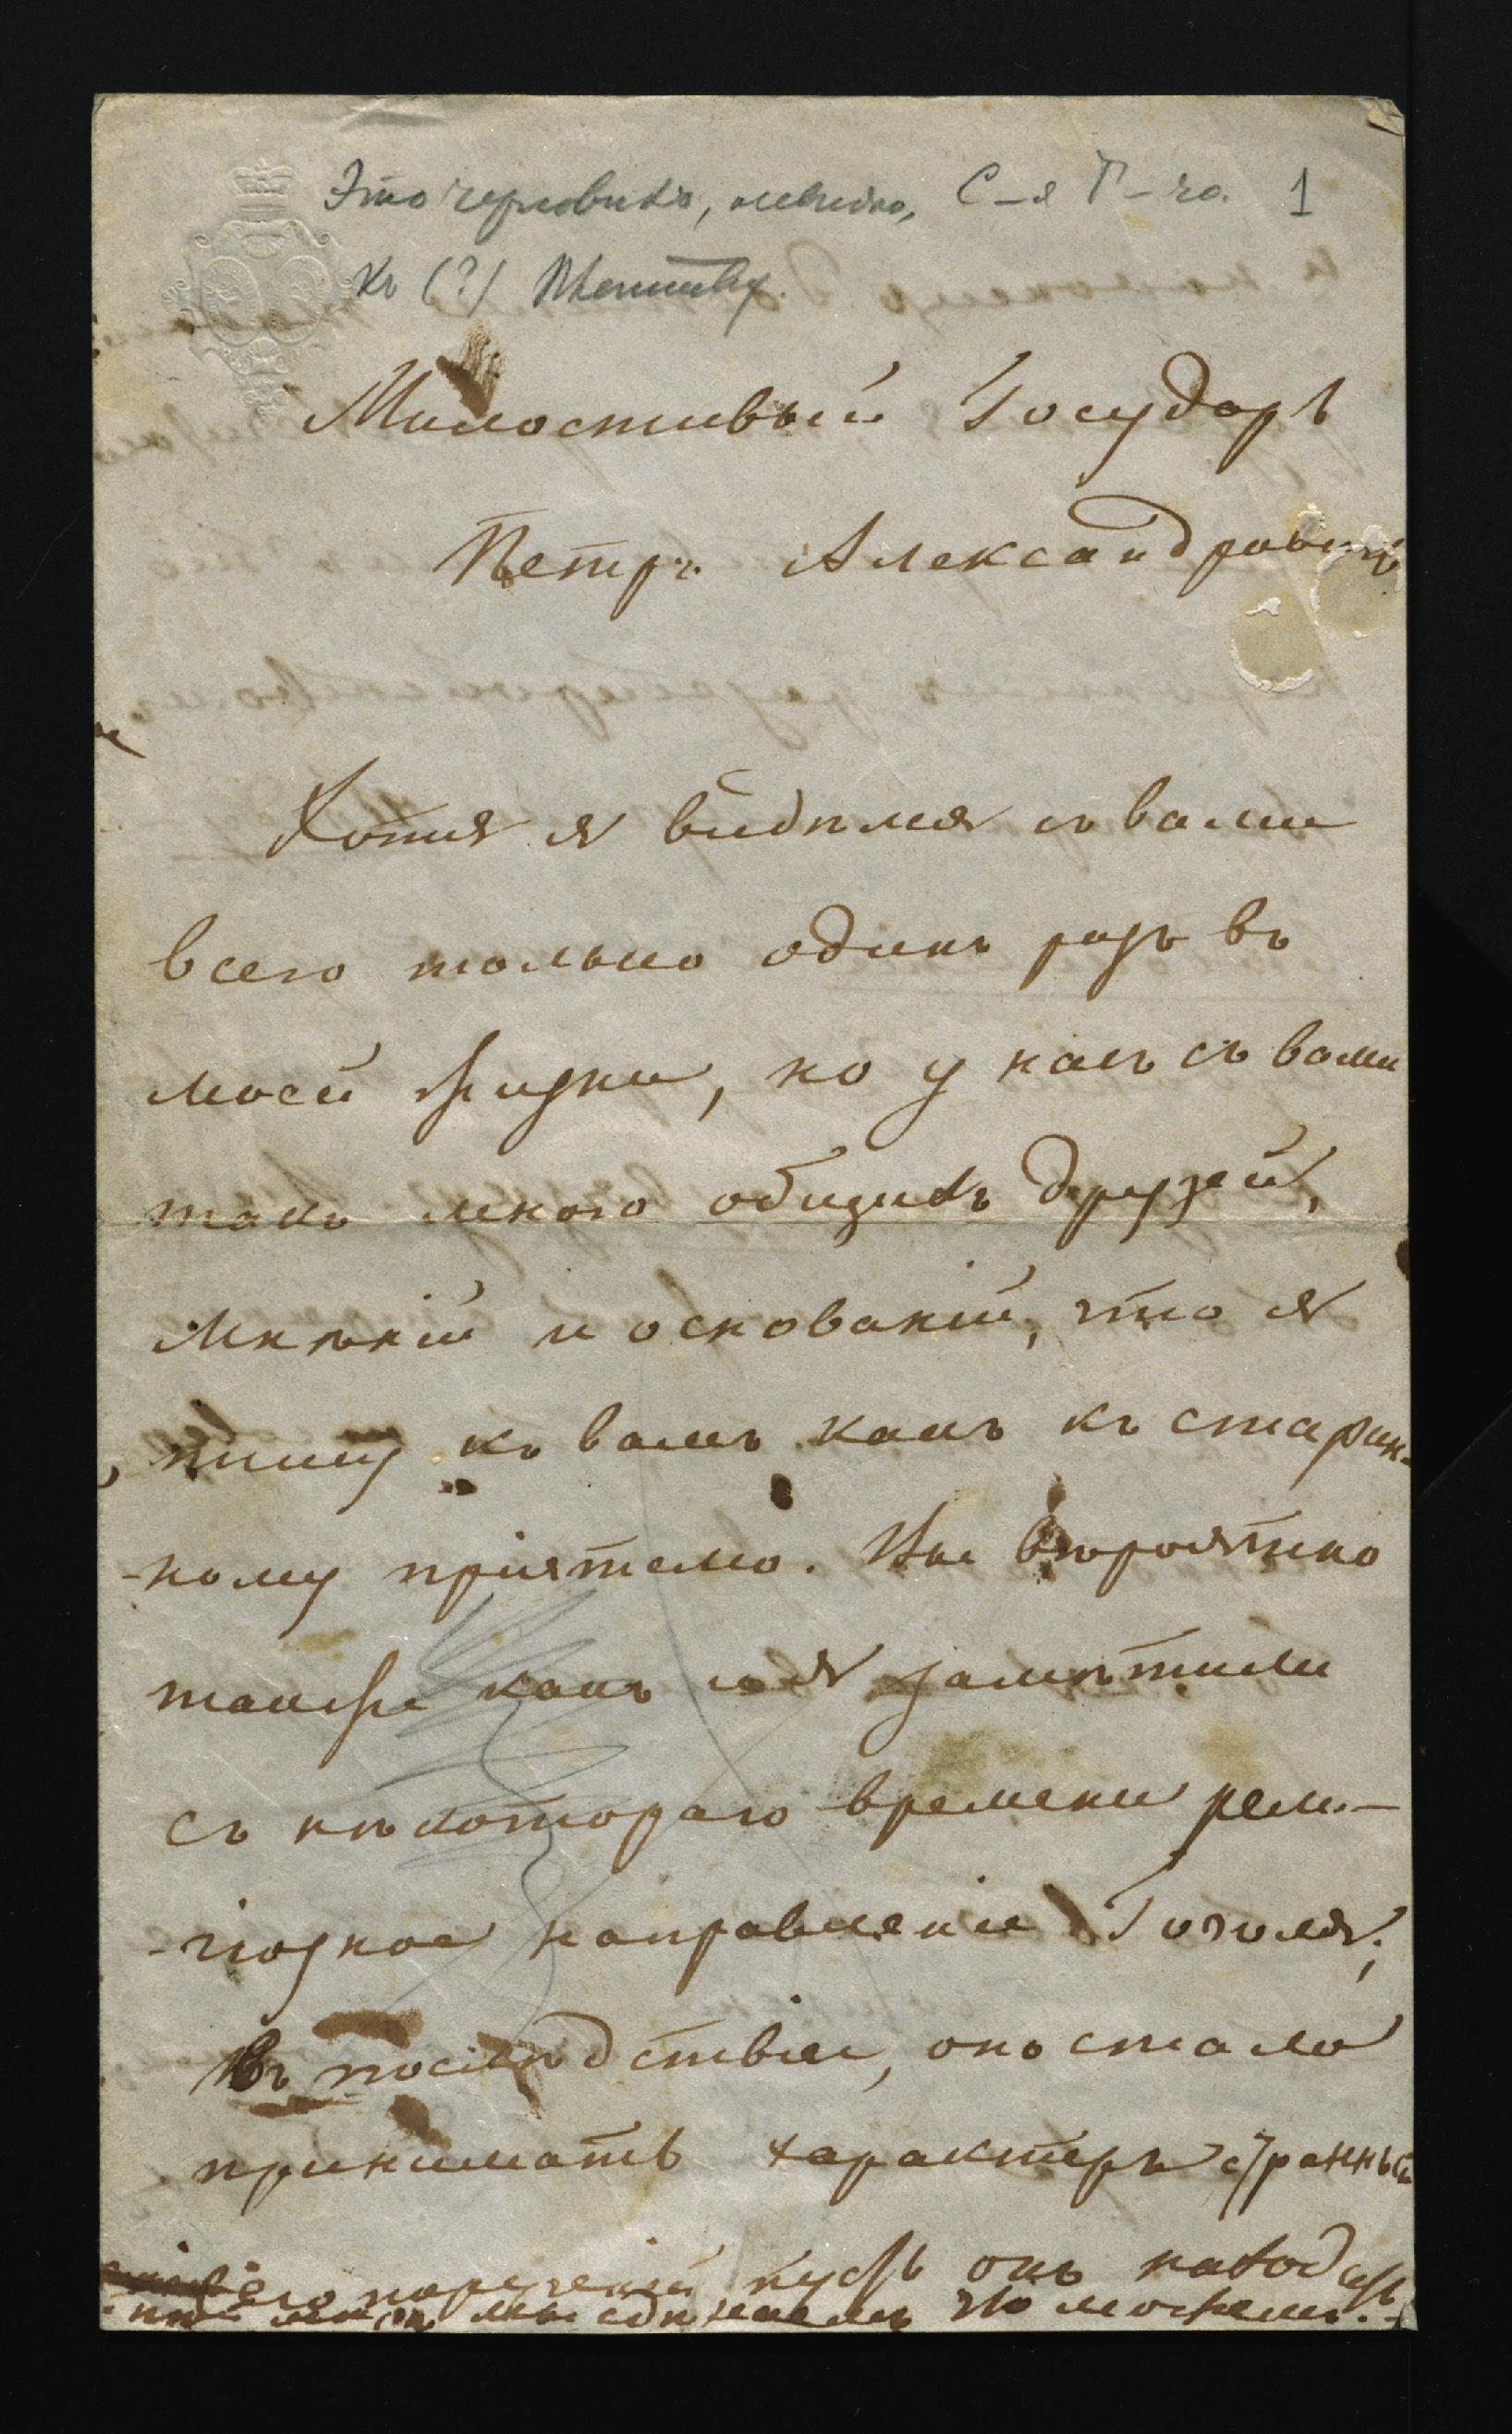 Это черновикъ, очевидно, С–я Т–ча. 1
къ (?) Плетневу.
Милостивый Государь
Петръ Александровичъ
Хотя я видѣлся съ вами
всего только одинъ разъ въ
моей жизни, но у насъ съ вами
такъ много общихъ друзей,
мнѣній и основаній, что я
пишу къ вамъ какъ къ старин-
-ному пріятелю. Вы вѣроятно
также какъ и я замѣтили
съ нѣкотораго времени рели-
-гіозное направленіе Гоголя;
въ послѣдствіи, оно стало
принимать характеръ странный
его порученій пусть онъ находитъ
мы сдѣлаемъ что можемъ.